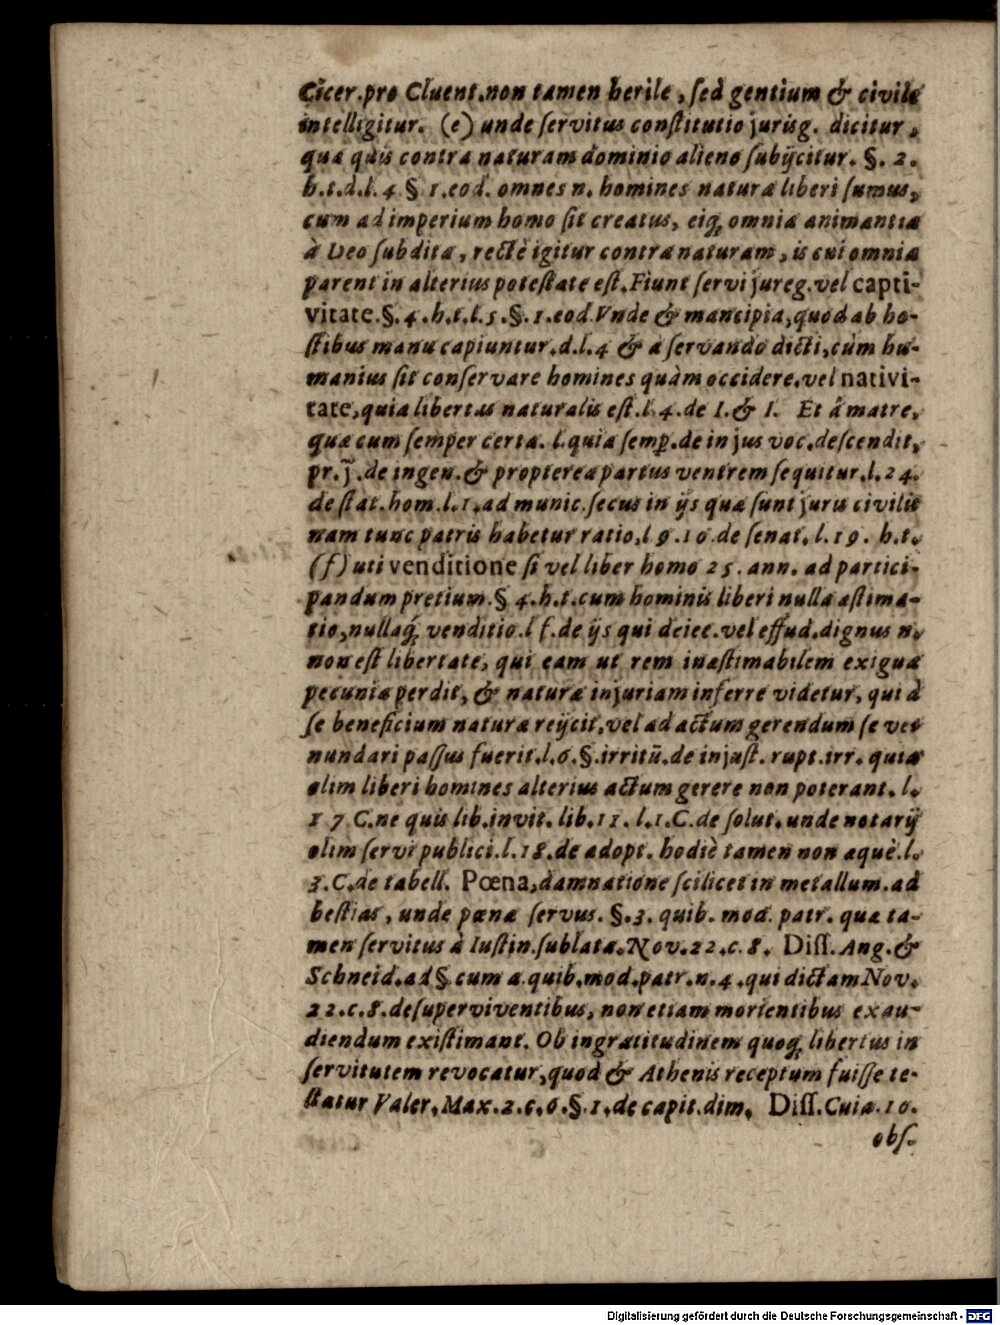 Cicer.pro Cluent.non tamen herile, ſed gentium & civile
intelligitur. (e) unde ſervitus conſtitutio jurisg. dicitur,
qua quis contra naturam dominio alieno ſubijcitur. §. 2.
h.t.d.l.4 §. 1.eod. omnes n. homines naturâ liberi ſumus,
cum ad imperium homo ſit creatus, eiq́; omnia animantia
à Deo ſubdita, rectè igitur contra naturam, is cui omnia
parent in alterius poteſtate eſt. Fiunt ſervi jureg. vel capti-
vitate.§.4.h.t.l.5.§.1.eod.Vnde & mancipia,quod ab ho-
ſtibus manu capiuntur.d.l.4 & à ſervando dicti,cùm hu-
manius ſit conſervare homines quàm occidere.vel nativi-
tate,quia libertas naturalis eſt.l.4.de I.& I. Et â matre,
quæ cum ſemper certa. l.quia ſemp.de in jus voc.deſcendit,
pr.j̃.de ingen.& propterea partus ventrem ſequitur.l.24.
de ſtat.hom.l.1.ad munic.ſecus in ijs quæ ſunt juris civilis
nam tunc patris habetur ratio,l 9.10 de ſenat.l.19. h.t.
(f) uti venditione ſi vel liber homo 25. ann. ad partici-
pandum pretium.§ 4.h.t.cum hominis liberi nulla æſtima-
tio,nullaq́; venditio.l f.de ijs qui deiec.vel effud.dignus n.
non eſt libertate, qui eam ut rem inæſtimabilem exiguâ
pecuniâ perdit, & naturæ injuriam inferre videtur, qui à
ſe beneficium naturæ reijcit,vel ad actum gerendum ſe ve-
nundari paſſus fuerit.l.6.§.irritũ.de injuſt. rupt.irr. quia
olim liberi homines alterius actum gerere non poterant. l.
17 C.ne quis lib.invit. lib.11. l.1.C.de ſolut.unde notarij
olim ſervi publici.l.18.de adopt. hodiè tamen non æquè.l.
3.C.de tabell. Pœna,damnatione ſcilicet in metallum.ad
beſtias, unde pœnæ ſervus. §.3. quib. mod. patr. quæ ta-
men ſervitus à Iuſtin.ſublata.Nov.22.c.8. Diſſ. Ang.&
Schneid.ad §.cum a.quib.mod.patr.n.4.qui dictam Nov.
22.c.8.de ſuperviventibus, non etiam morientibus exau-
diendum exiſtimant. Ob ingratitudinem quoq́; libertus in
ſervitutem revocatur,quod & Athenis receptum fuiſſe te-
ſtatur Valer.Max.2.c.6.§.1.de capit.dim. Diſſ.Cuia.10.
obſ.
Digitalisierung gefördert durch die Deutsche Forschungsgemeinschaft - DFG